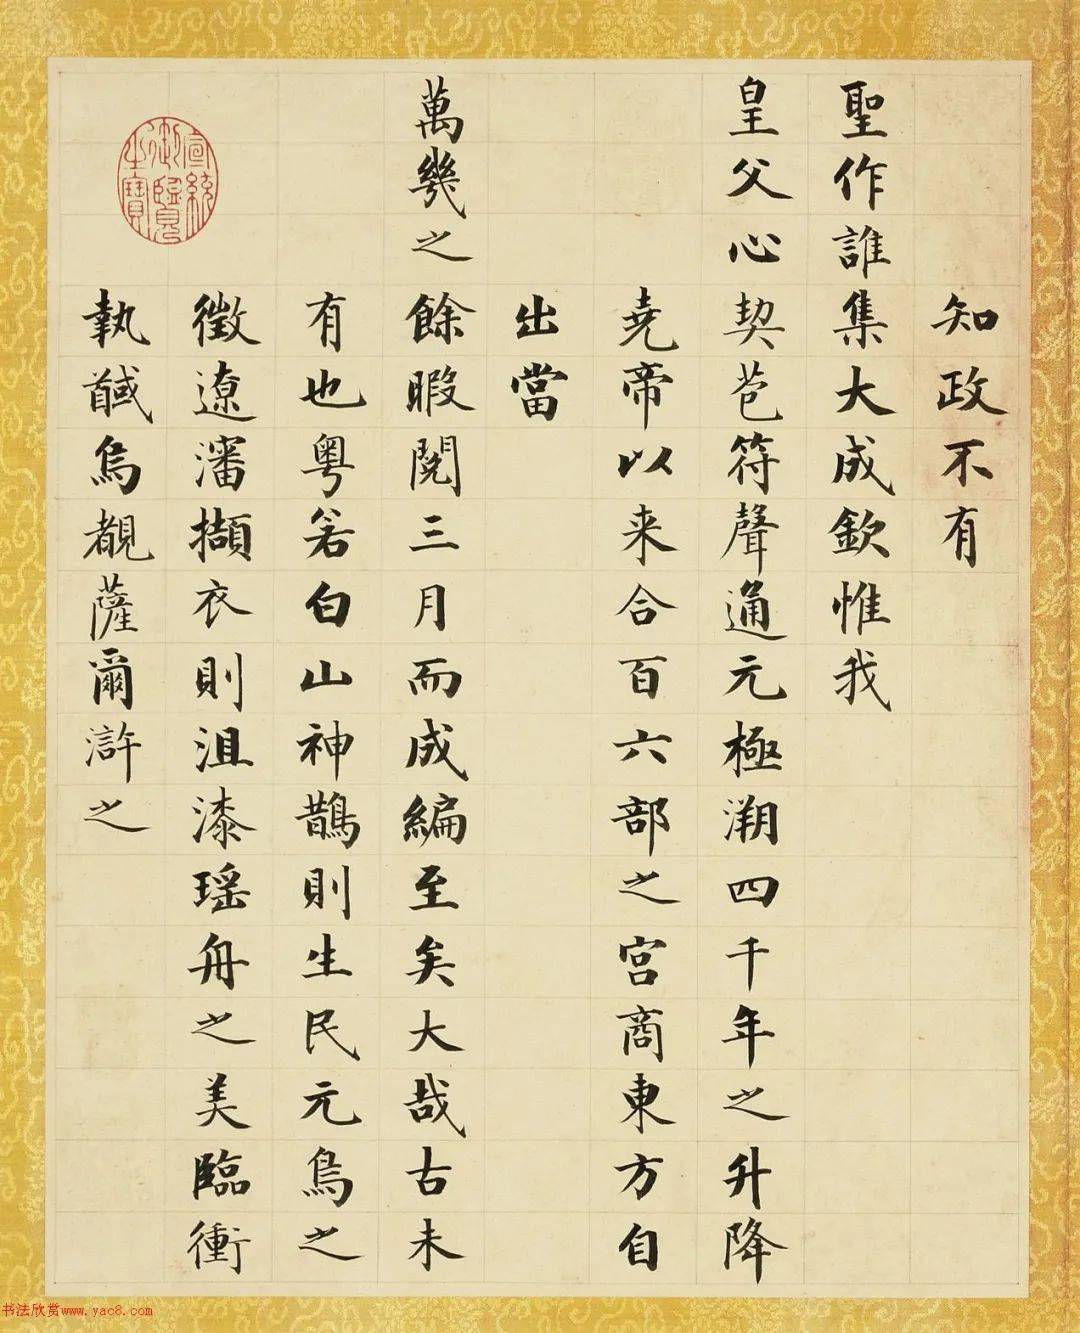 知政不有
聖作誰集大成欽惟我
皇父心契苞符聲通元極溯四千年之升降
堯帝以来合百六部之宫商東方自
出當
萬幾之餘暇閱三月而成編至矣大哉古未
有也粵若白山神鵲則生民元鳥之
徵遼瀋擷衣則沮漆瑶舟之美臨衝
執馘烏覩薩爾滸之
宣統
御覽
之寶
书法欣赏www.yac8.com